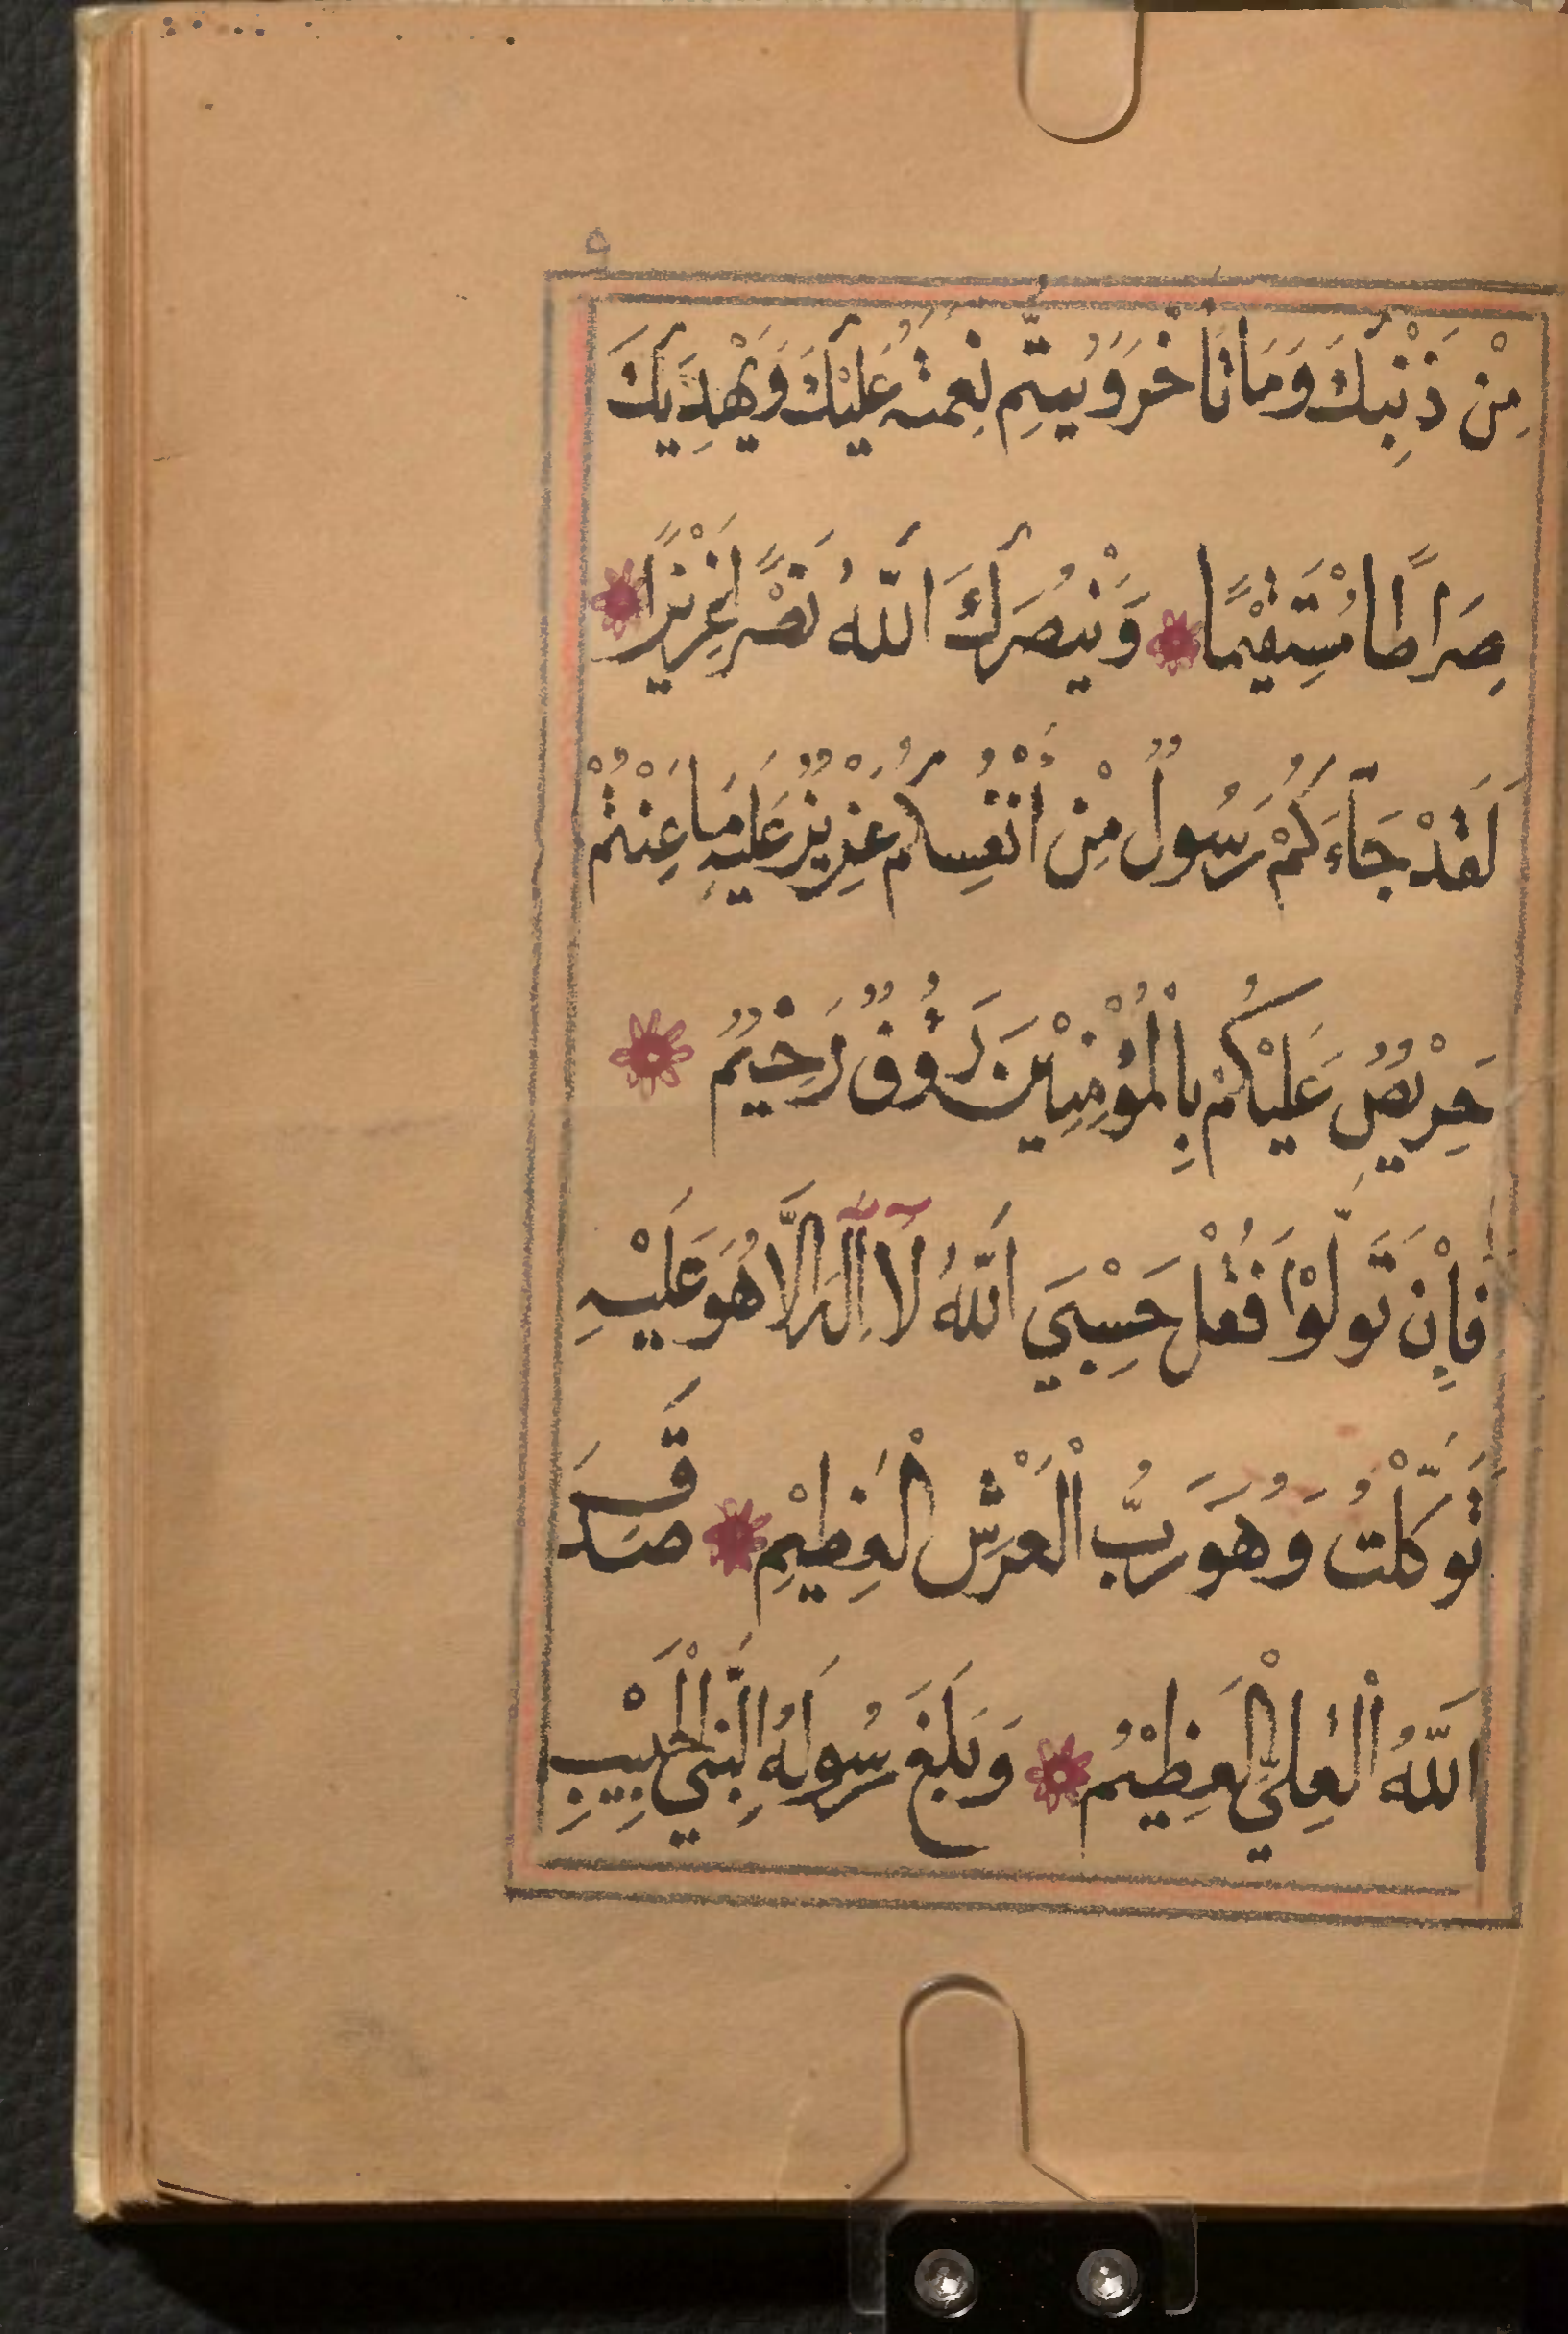 ٩
مِنْ ذَنْبِكَ وَمَا تَأَخَّرَ وَيُتِمَّ نِعْمَتَهُ عَلَيْكَ وَيَهْدِيَكَ
صِرَاطًا مُسْتَقِيْمًا وَيَنْصُرَكَ اللّٰهُ نَصْرًا عَزِيْزًا
لَقَدْ جَآءَكُمْ رَسُولٌ مِنْ أَنْفُسِكُمْ عَزِيْزٌ عَلَيْهِ مَا عَنِتُّمْ
حَرِيْصٌ عَلَيْكُمْ بِالْمُؤْمِنِيْنَ رَؤُفٌ رَحِيْمٌ
فَإِنْ تَوَلَّوْا فَقُلْ حَسْبِيَ اللّٰهُ لَآ اِلٰهَ اِلَّا هُوَ عَلَيْهِ
تَوَكَّلْتُ وَهُوَ رَبُّ الْعَرْشِ الْعَظِيْمِ صَدَقَ
اللّٰهُ الْعَلِيُّ الْعَظِيْمُ وَبَلَّغَ رَسُولُهُ النَّبِيُّ الْحَبِيْبِ